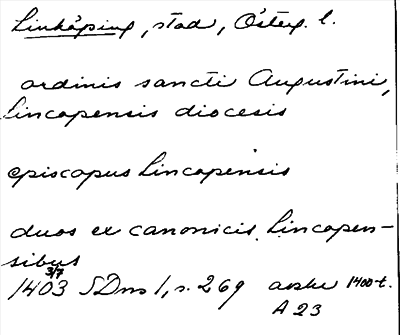 Linköping, stad, Österg. l.
ordinis sancti Augustini,
lincopensis diocesis
episcopus lincopensis
duos ex canonicis lincopen-
sibus
1403 3/7 SDns 1, s. 269 avskr 1400-t.
A 23